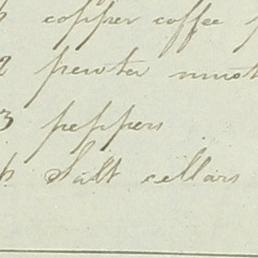 copper coffee
2 pewter
3 peppers
Salt cellars